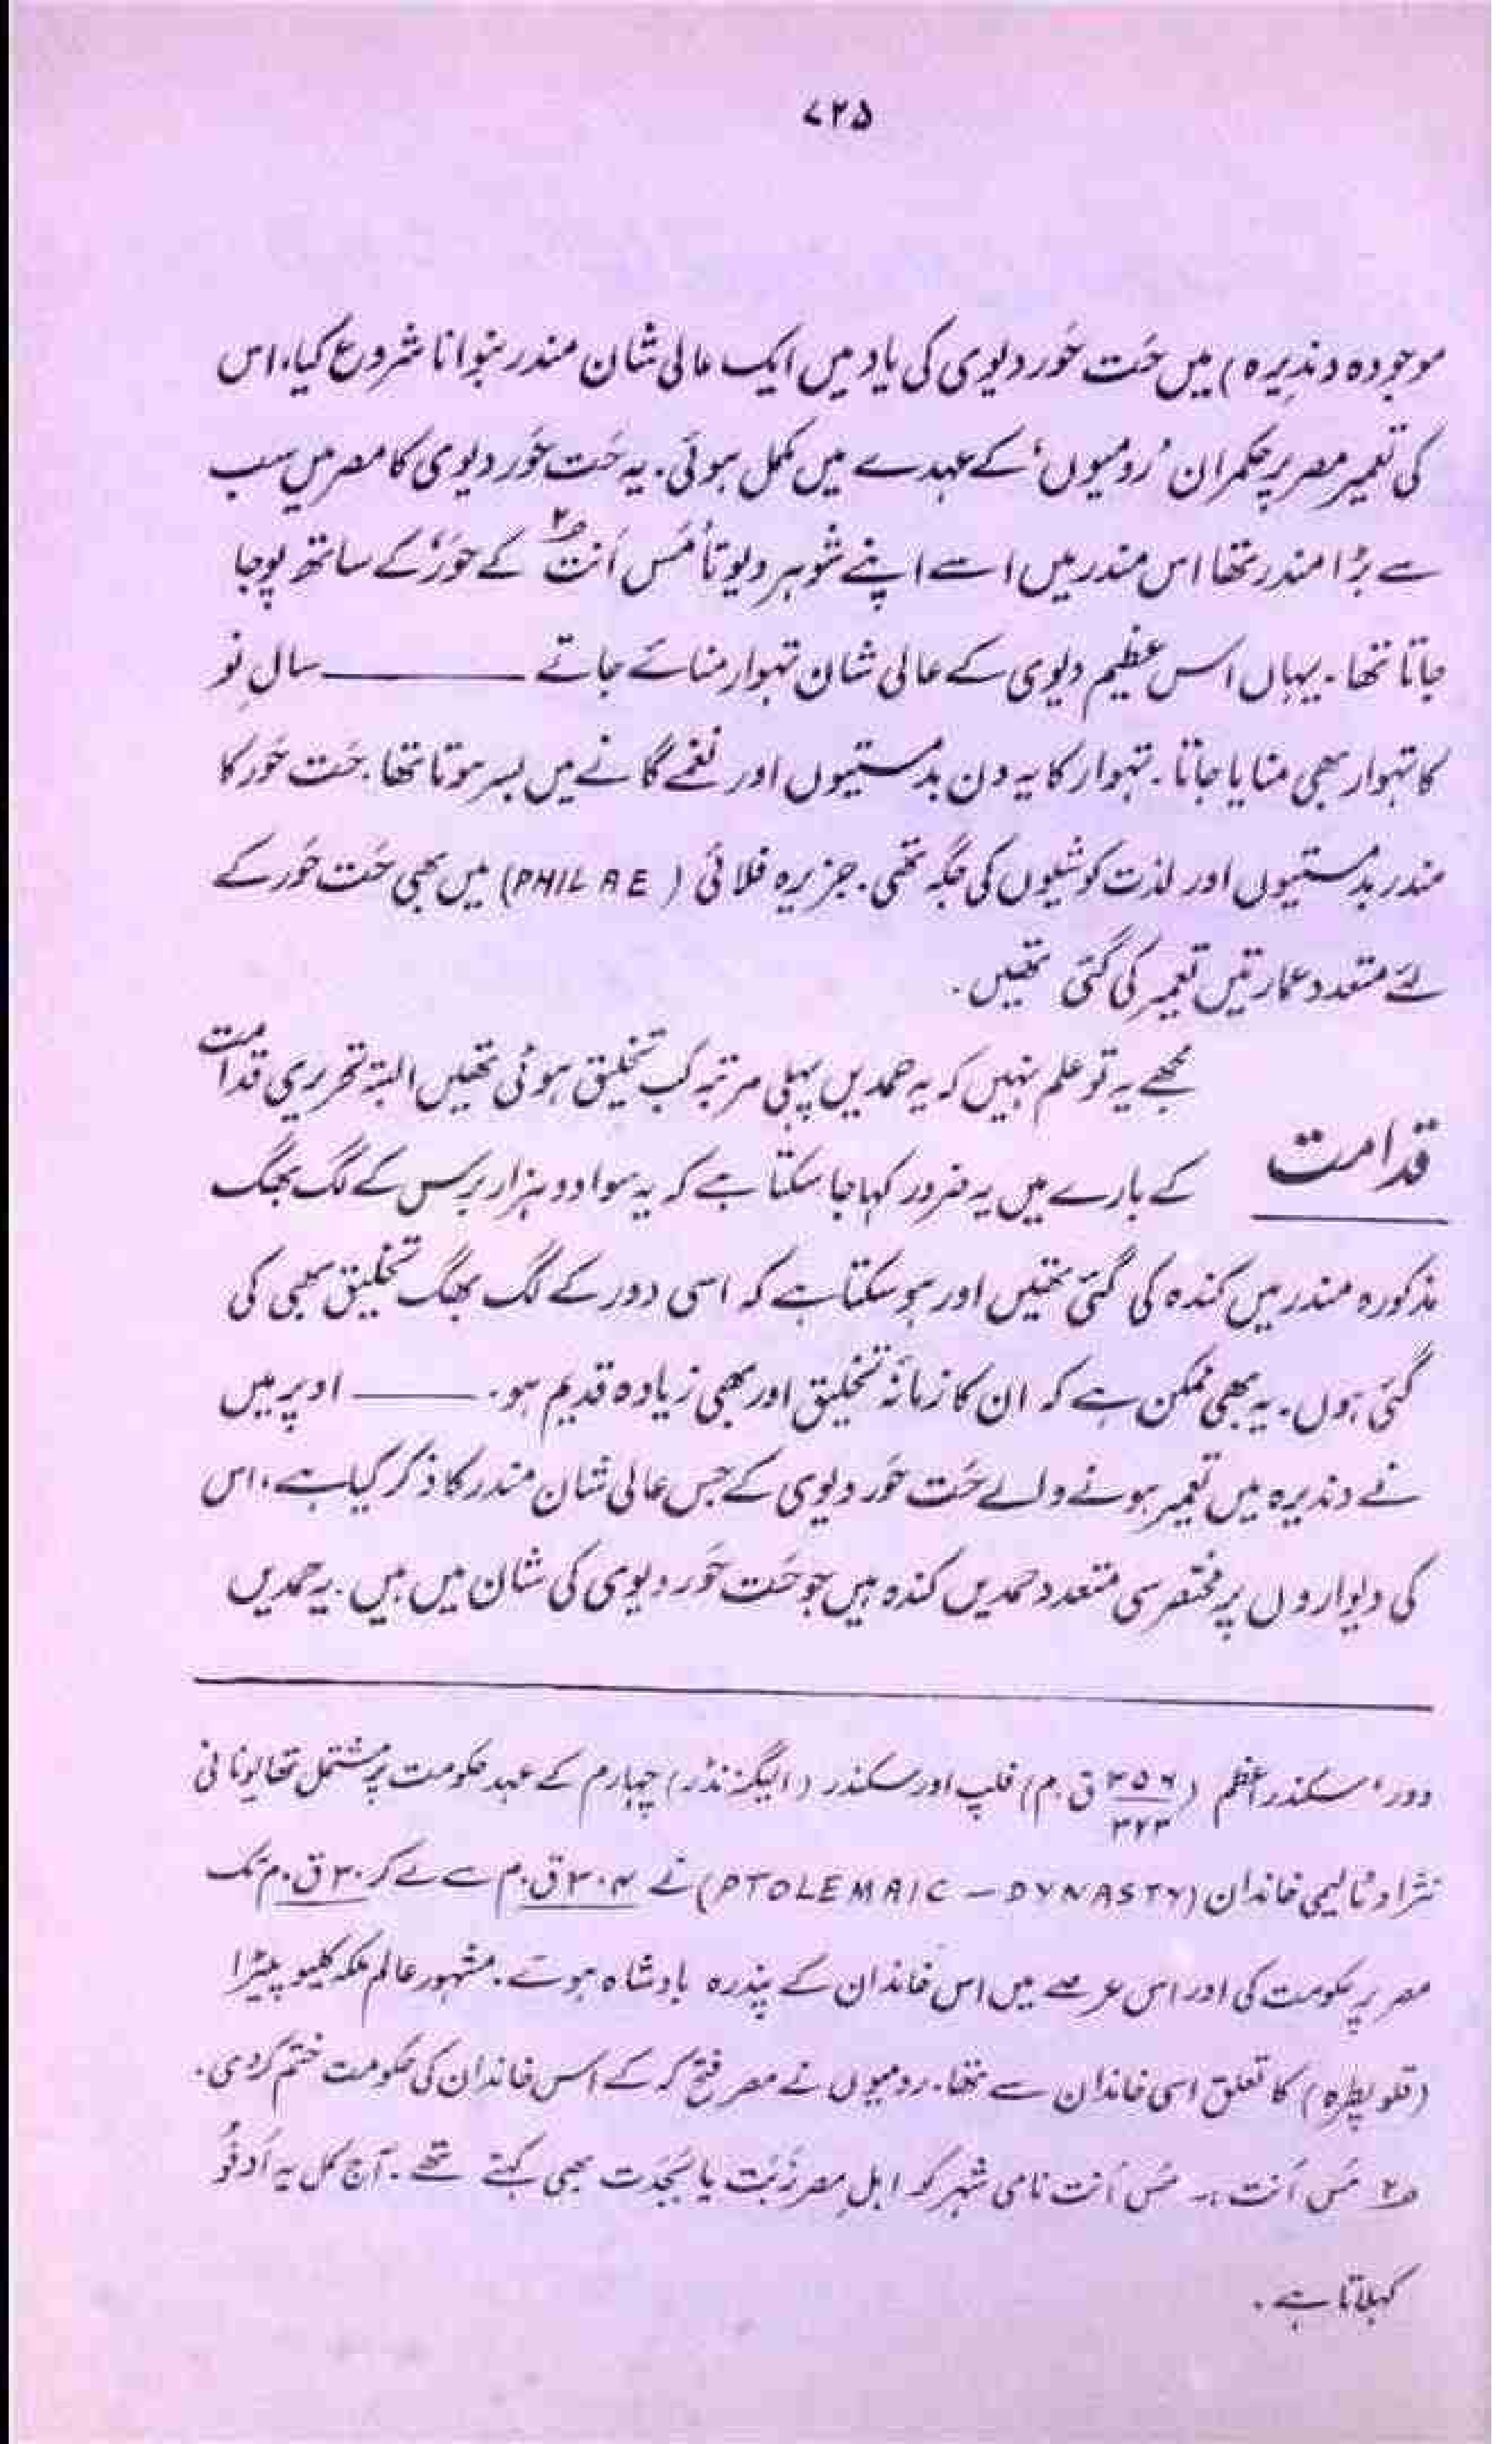 ۷۲۵
موجودہ دندیرہ) میں حَت حَور دیوی کی یاد میں ایک عالی شان مندر بنوانا شروع کیا، اس
کی تعمیر مصر پر حکمران ’رومیوں‘ کے عہدے میں مکمل ہوئی۔ یہ حَت حَور دیوی کا مصر میں سب
سے بڑا مندر تھا اس مندر میں اسے اپنے شوہر دیوتا ’مَس اَنت ؂۲ کے حَوَر‘ کے ساتھ پوجا
جاتا تھا۔ یہاں اس عظیم دیوی کے عالی شان تہوار منائے جاتے ——— سالِ نو
کا تہوار بھی منایا جاتا۔ تہوار کا یہ دن بدمستیوں اور نغمے گانے میں بسر ہوتا تھا۔ حَت حَور کا
مندر بدمستیوں اور لذت کوشیوں کی جگہ تھی۔ جزیرہ فلائی (PHILAE) میں بھی حَت حَور کے
لئے متعدد عمارتیں تعمیر کی گئی تھیں۔
مجھے یہ تو علم نہیں کہ یہ حمدیں پہلی مرتبہ کب تخلیق ہوئی تھیں البتہ تحریری قدامت
قدامت
کے بارے میں یہ ضرور کہا جا سکتا ہے کہ یہ سوا دو ہزار برس کے لگ بھگ
مذکورہ مندر میں کندہ کی گئی تھیں اور ہو سکتا ہے کہ اسی دور کے لگ بھگ تخلیق بھی کی
گئی ہوں۔ یہ بھی ممکن ہے کہ ان کا زمانۂ تخلیق اور بھی زیادہ قدیم ہو۔ ——— اوپر میں
نے دندیرہ میں تعمیر ہونے والے حَت حَور دیوی کے جس عالی شان مندر کا ذکر کیا ہے، اس
کی دیواروں پر مختصر سی متعدد حمدیں کندہ ہیں جو حَت حَور دیوی کی شان میں ہیں۔ یہ حمدیں
دور‘ سکندر اعظم (۳۵۶/۳۲۳ ق.م) فلپ اور سکندر (الیگزنڈر) چہارم کے عہد حکومت پر مشتمل تھا یونانی
نژاد تالیمی خاندان (PTOLEMAIC – DYNASTY) نے ۳۰۴ ق.م سے لے کر ۳۰ ق.م تک
مصر پر حکومت کی اور اس عرصے میں اس خاندان کے پندرہ بادشاہ ہوئے۔ مشہور عالم ملکہ کلیوپیٹرا
(قلوپطرہ) کا تعلق اسی خاندان سے تھا۔ رومیوں نے مصر فتح کر کے اس خاندان کی حکومت ختم کر دی۔
؂۲ مَس اَنت :۔ مَس اَنت نامی شہر کو اہلِ مصر زَبَت یا بَجدَت بھی کہتے تھے۔ آج کل یہ اَدفُو
کہلاتا ہے۔